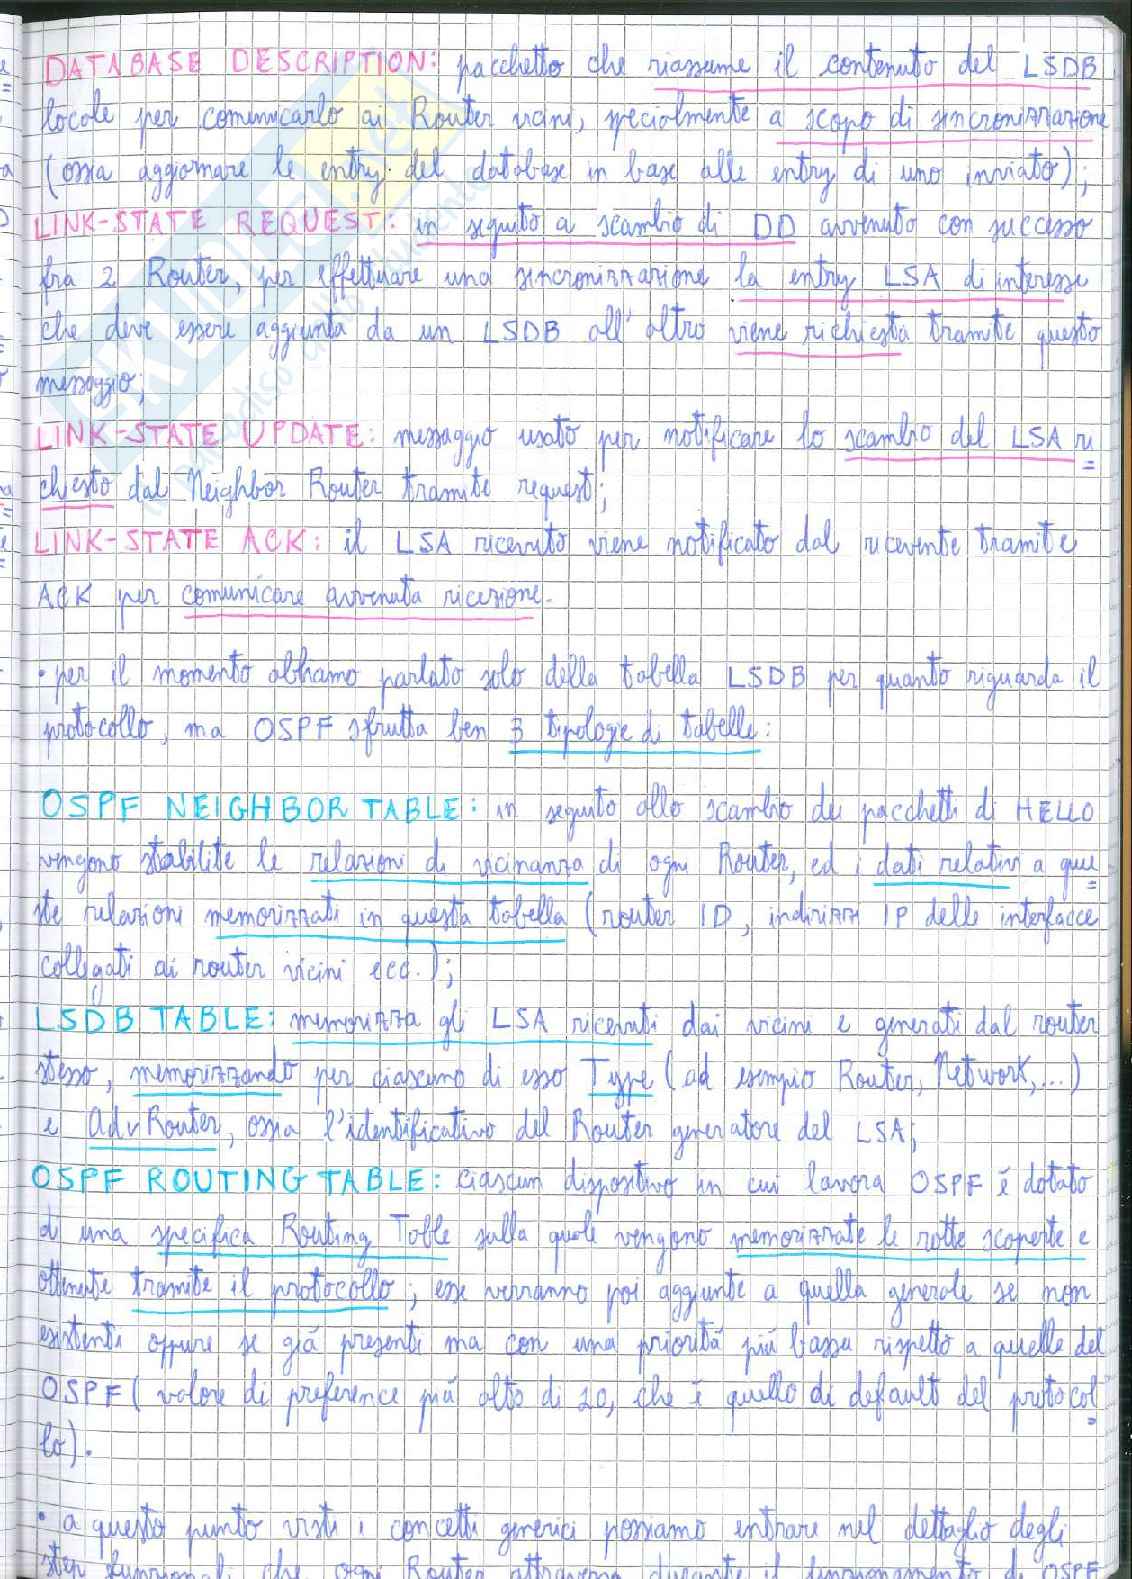 DATABASE DESCRIPTION: pacchetto che riassume il contenuto del LSDB
locale per comunicarlo ai Router vicini, specialmente a scopo di sincronizzazione
(ossia aggiornare le entry del database in base alle entry di uno inviato);
LINK-STATE REQUEST: in seguito a scambio di DD avvenuto con successo
fra 2 Router, per effettuare una sincronizzazione la entry LSA di interesse
che deve essere aggiunta da un LSDB all'altro viene richiesta tramite questo
messaggio;
LINK-STATE UPDATE: messaggio usato per notificare lo scambio del LSA ri
chiesto dal Neighbor Router tramite request;
LINK-STATE ACK: il LSA ricevuto viene notificato dal ricevente tramite
ACK per comunicare avvenuta ricezione.
• per il momento abbiamo parlato solo della tabella LSDB per quanto riguarda il
protocollo, ma OSPF sfrutta ben 3 tipologie di tabelle:
OSPF NEIGHBOR TABLE: in seguito allo scambio dei pacchetti di HELLO
vengono stabilite le relazioni di vicinanza di ogni Router, ed i dati relativi a que
ste relazioni memorizzati in questa tabella (router ID, indirizzi IP delle interfacce
collegati ai router vicini ecc.);
LSDB TABLE: memorizza gli LSA ricevuti dai vicini e generati dal router
stesso, memorizzando per ciascuno di esso Type (ad esempio Router, Network,...)
e Adv Router, ossia l'identificativo del Router generatore del LSA;
OSPF ROUTING TABLE: ciascun dispositivo in cui lavora OSPF è dotato
di una specifica Routing Table sulla quale vengono memorizzate le rotte scoperte e
ottenute tramite il protocollo; esse verranno poi aggiunte a quella generale se non
esistenti oppure se già presenti ma con una priorità più bassa rispetto a quelle del
OSPF (valore di preference più alto di 10, che è quello di default del protocol
lo).
• a questo punto visti i concetti generici possiamo entrare nel dettaglio degli
step funzionali che ogni Router attraversa durante il funzionamento di OSPF